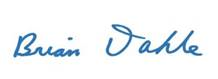 Brian Dahle